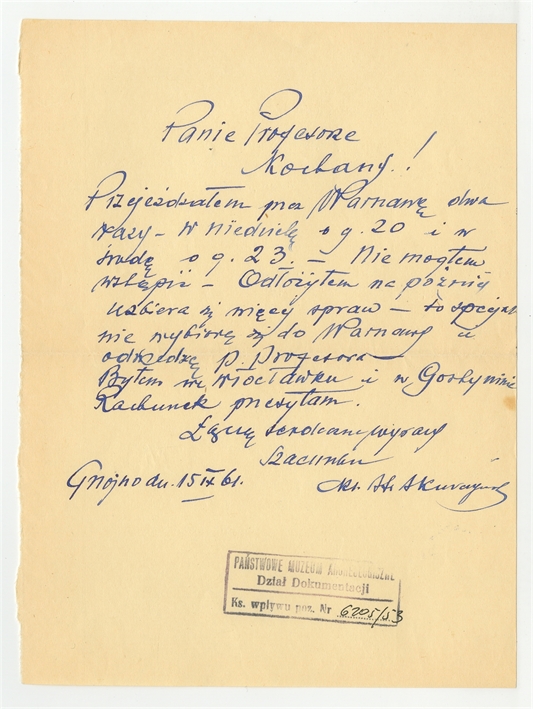 Panie Profesorze
Kochany!
Przejeżdżałem przez Warszawę dwa
razy – w niedzielę o g. 20 i w
środę o g. 23. – Nie mogłem
wstąpić – Odłożyłem na później
uzbiera się więcej spraw – to specjal
nie wybiorę się do Warszawy i
odwiedzę p. Profesora
Byłem we Włocławku i w Gostyninie
Rachunek przesyłam.
Łączę serdeczne wyrazy
szacunku
Gnojno dn. 15 IX 61.
PAŃSTWOWE MUZEUM ARCHEOLOGICZNE
Dział Dokumentacji
Ks. wpływu poz. Nr 6205/53